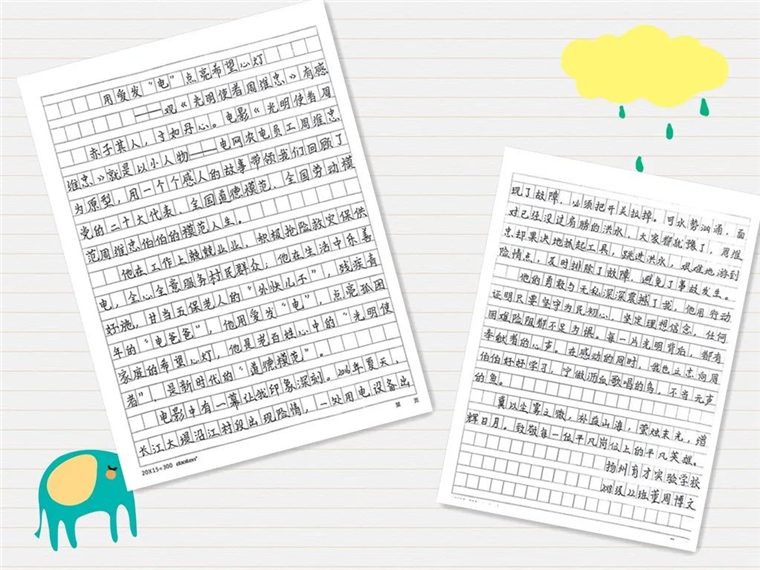 用爱发“电”点亮希望心灯
——观《光明使者周维忠》有感
赤子其人，寸如丹心。电影《光明使者周
维忠》就是以小人物——电网农电员工周维忠
为原型，用一个个感人的故事带领我们回顾了
党的二十大代表、全国道德模范、全国劳动模
范周维忠伯伯的模范人生。
他在工作上兢兢业业，积极抢险救灾保供
电，全心全意服务村民群众；他在生活中乐善
好施，甘当五保老人的“外快儿子”，残疾青
年的“电爸爸”，他用爱发“电”，点亮孤困
家庭的希望心灯，他是老百姓心中的“光明使
者”，是新时代的“道德模范”。
电影中有一幕让我印象深刻。2016年夏天，
长江大堤沿江村段出现险情，一处用电设备出
第 页
20X15=300
现了故障，必须把开关拉掉。可水势汹涌，面
对已经没过肩膀的洪水，大家都犹豫了，周维
忠却果决地抓起工具，跳进洪水，艰难地游到
险情点，及时排除了故障，避免了事故发生。
他的勇敢与无私深深震撼了我，他用行动
证明只要坚守为民初心，坚定理想信念，任何
困难险阻都不足与惧。每一片光明背后，都有
奉献者的心声。在感动的同时，我也立志向周
伯伯好好学习，宁做沥血歌唱的鸟，不当无声
的鱼。
冀以尘雾之微，补益山海，萤烛末光，增
辉日月。致敬每一位平凡岗位上的平凡英雄。
扬州育才实验学校
2018级22班董周博文